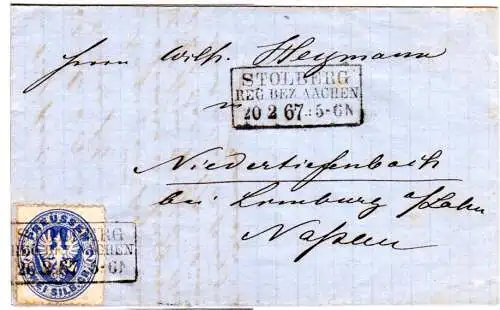 Herrn Wilh. Heymann
STOLBERG
REG BEZ. AACHEN
20 2 67. 5-6N
in
Niedertiefenbach
bei Limburg a/Lahn
Nassau
PREUSSEN
ZWEI SILB. GR.
STOLBERG
REG BEZ. AACHEN
20 2 67. 5-6N